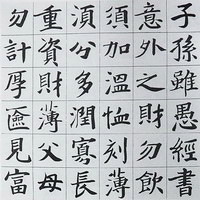 子孫雖愚經書
意外之財勿飲
須加溫恤刻薄
湏分多潤寡長
重資財薄父母
勿計厚匳見富